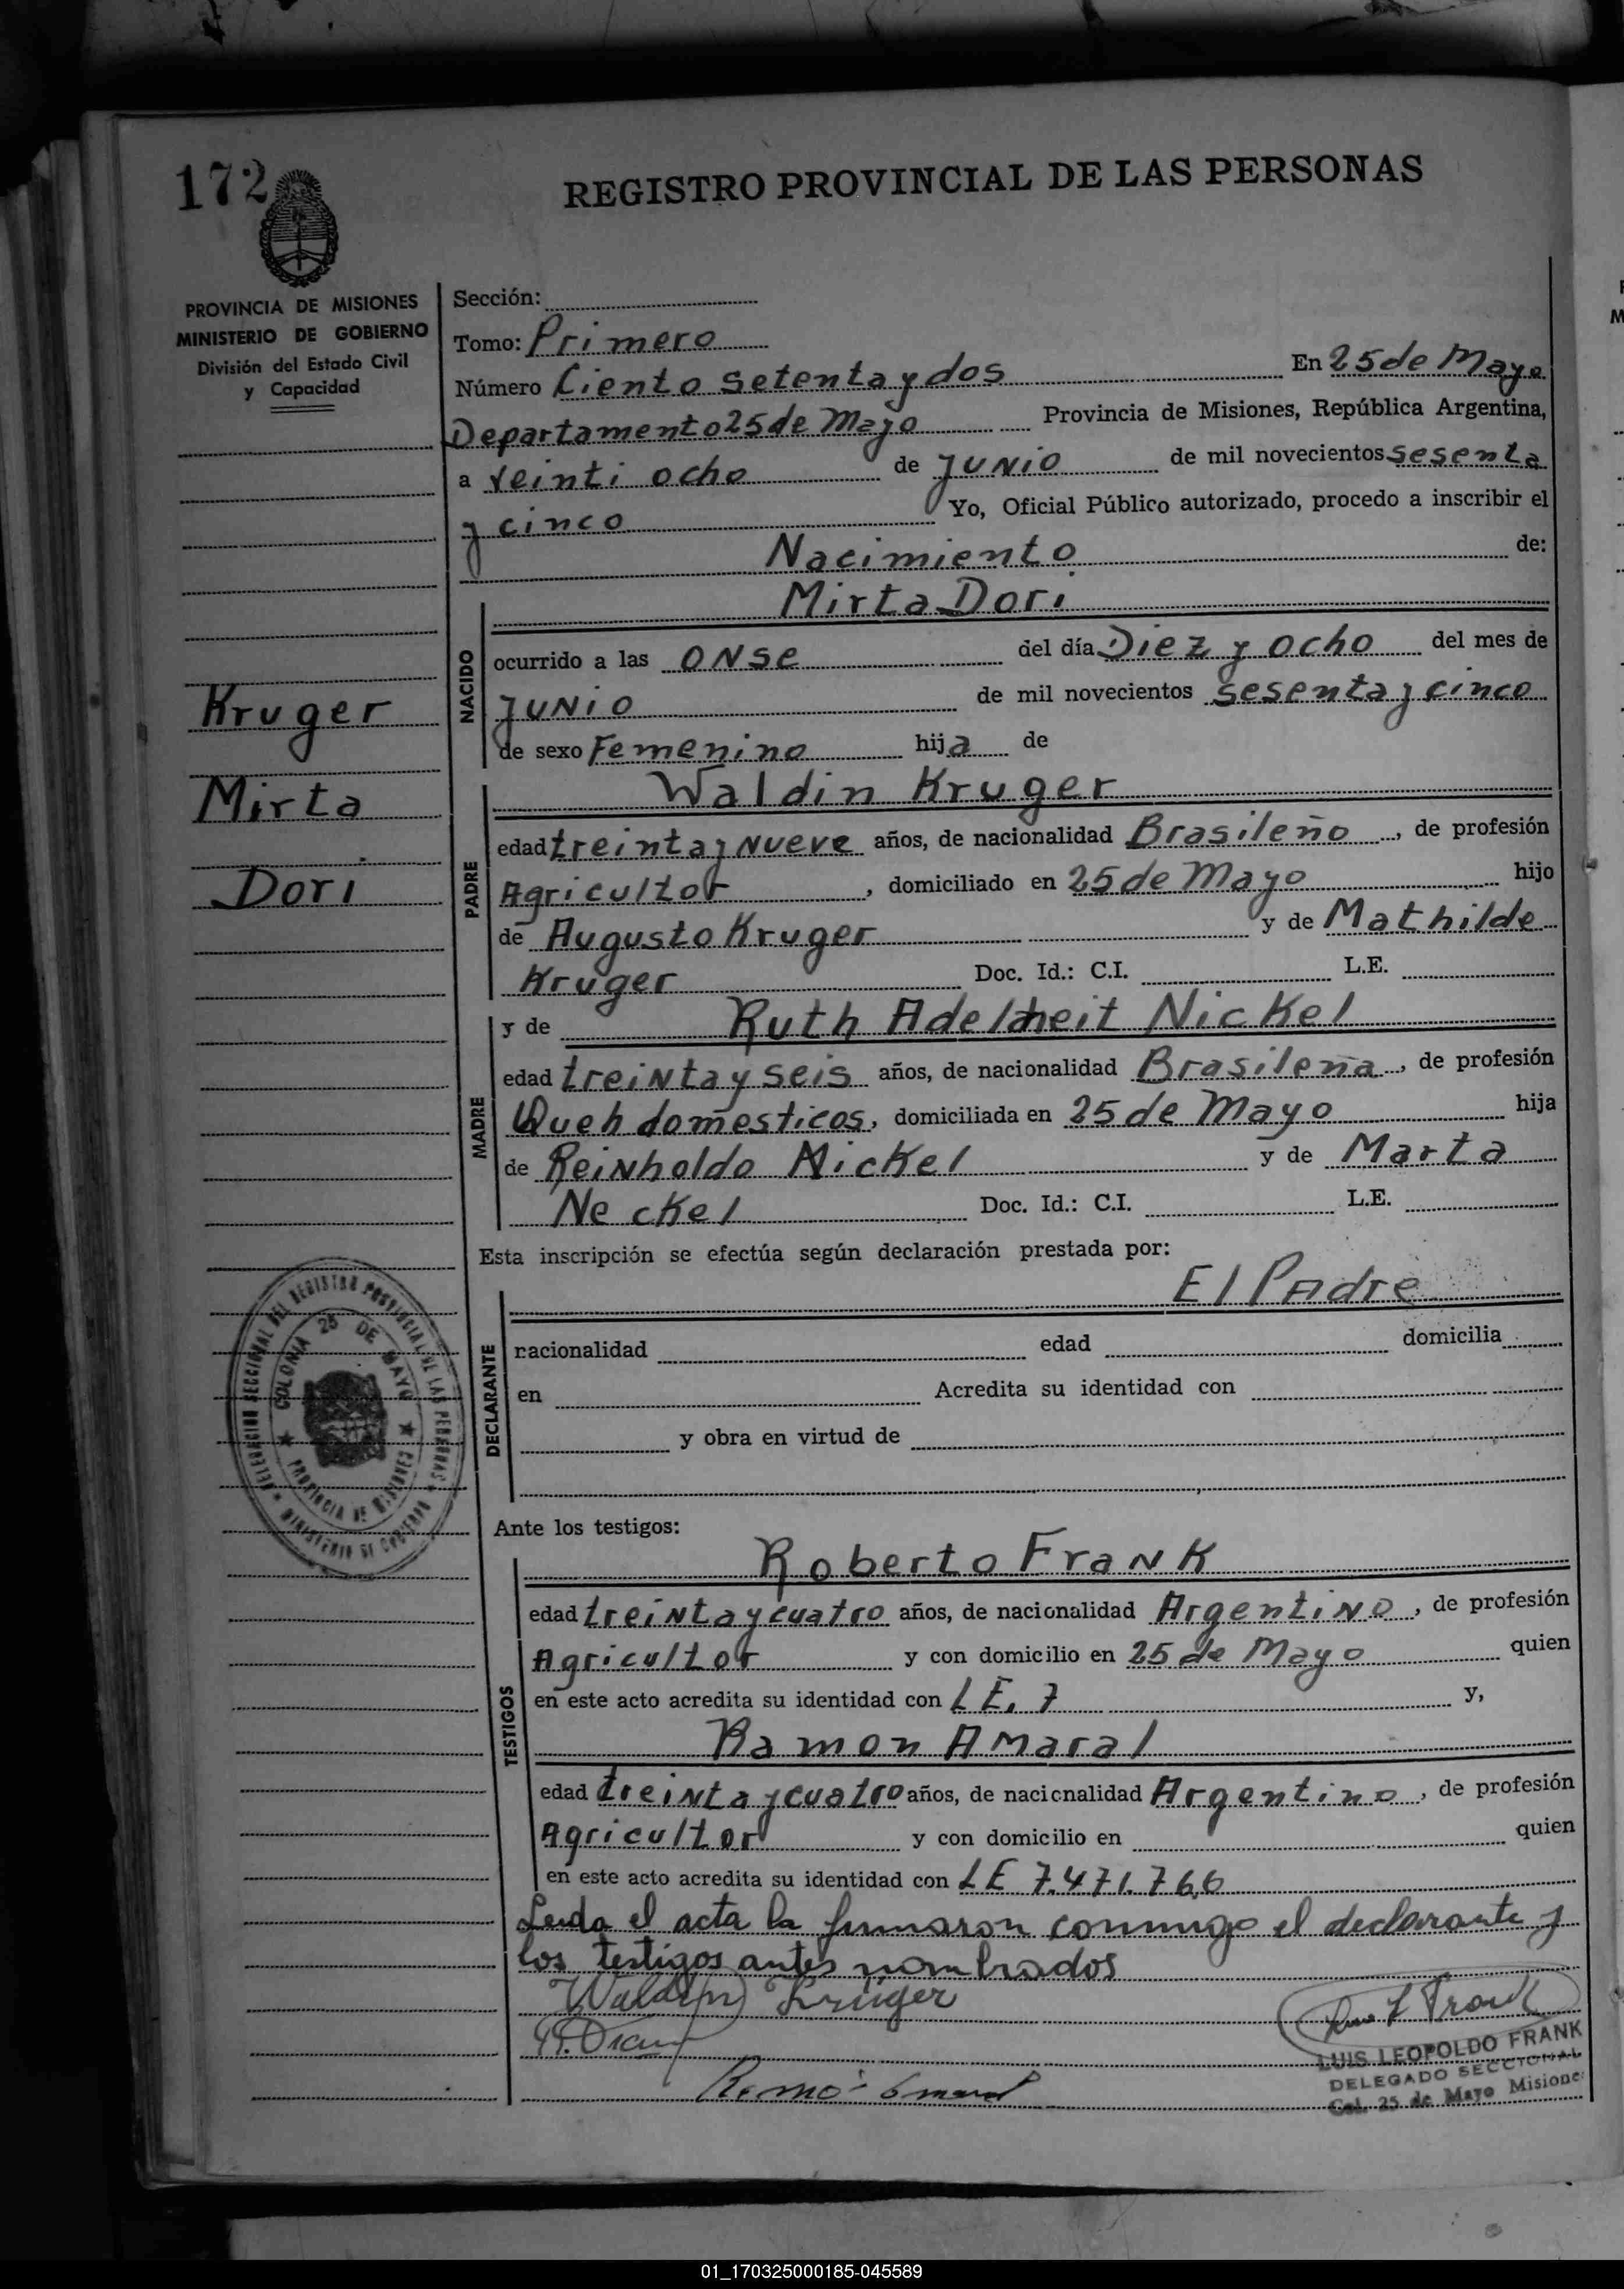 172
REGISTRO PROVINCIAL DE LAS PERSONAS
PROVINCIA DE MISIONES
MINISTERIO DE GOBIERNO
División del Estado Civil
y Capacidad
Kruger
Mirta
Dori
Sección:
Tomo: Primero
Número Ciento setenta y dos En 25 de Mayo
Departamento 25 de Mayo Provincia de Misiones, República Argentina,
a veinti ocho de JUNIO de mil novecientos sesenta
y cinco Yo, Oficial Público autorizado, procedo a inscribir el
Nacimiento de:
NACIDO
Mirta Dori
ocurrido a las ONSE del día Diez y ocho del mes de
JUNIO de mil novecientos sesenta y cinco
de sexo Femenino hija de
PADRE
Waldin Kruger
edad treinta y nueve años, de nacionalidad Brasileño, de profesión
Agricultor, domiciliado en 25 de Mayo hijo
de Augusto Kruger y de Mathilde
Kruger Doc. Id.: C.I. L.E.
MADRE
y de Ruth Adelheit Nickel
edad treinta y seis años, de nacionalidad Brasileña, de profesión
Queh domesticos, domiciliada en 25 de Mayo hija
de Reinholdo Nickel y de Marta
Neckel Doc. Id.: C.I. L.E.
Esta inscripción se efectúa según declaración prestada por:
DECLARANTE
El Padre
nacionalidad edad domicilia
en Acredita su identidad con
y obra en virtud de
DELEGACION SECCIONAL DEL REGISTRO PROVINCIAL DE LAS PERSONAS
MINISTERIO DE GOBIERNO
COLONIA 25 DE MAYO
PROVINCIA DE MISIONES
Ante los testigos:
TESTIGOS
Roberto Frank
edad treinta y cuatro años, de nacionalidad Argentino, de profesión
Agricultor y con domicilio en 25 de Mayo quien
en este acto acredita su identidad con LE. 7 y,
Ramon Amaral
edad treinta y cuatro años, de nacionalidad Argentino, de profesión
Agricultor y con domicilio en quien
en este acto acredita su identidad con LE 7.471.766
Leida el acta la firmaron conmigo el declarante y
los testigos antes nombrados
Waldin Krüger
LUIS LEOPOLDO FRANK
DELEGADO SECCIONAL
Col. 25 de Mayo Misiones
01_170325000185-045589